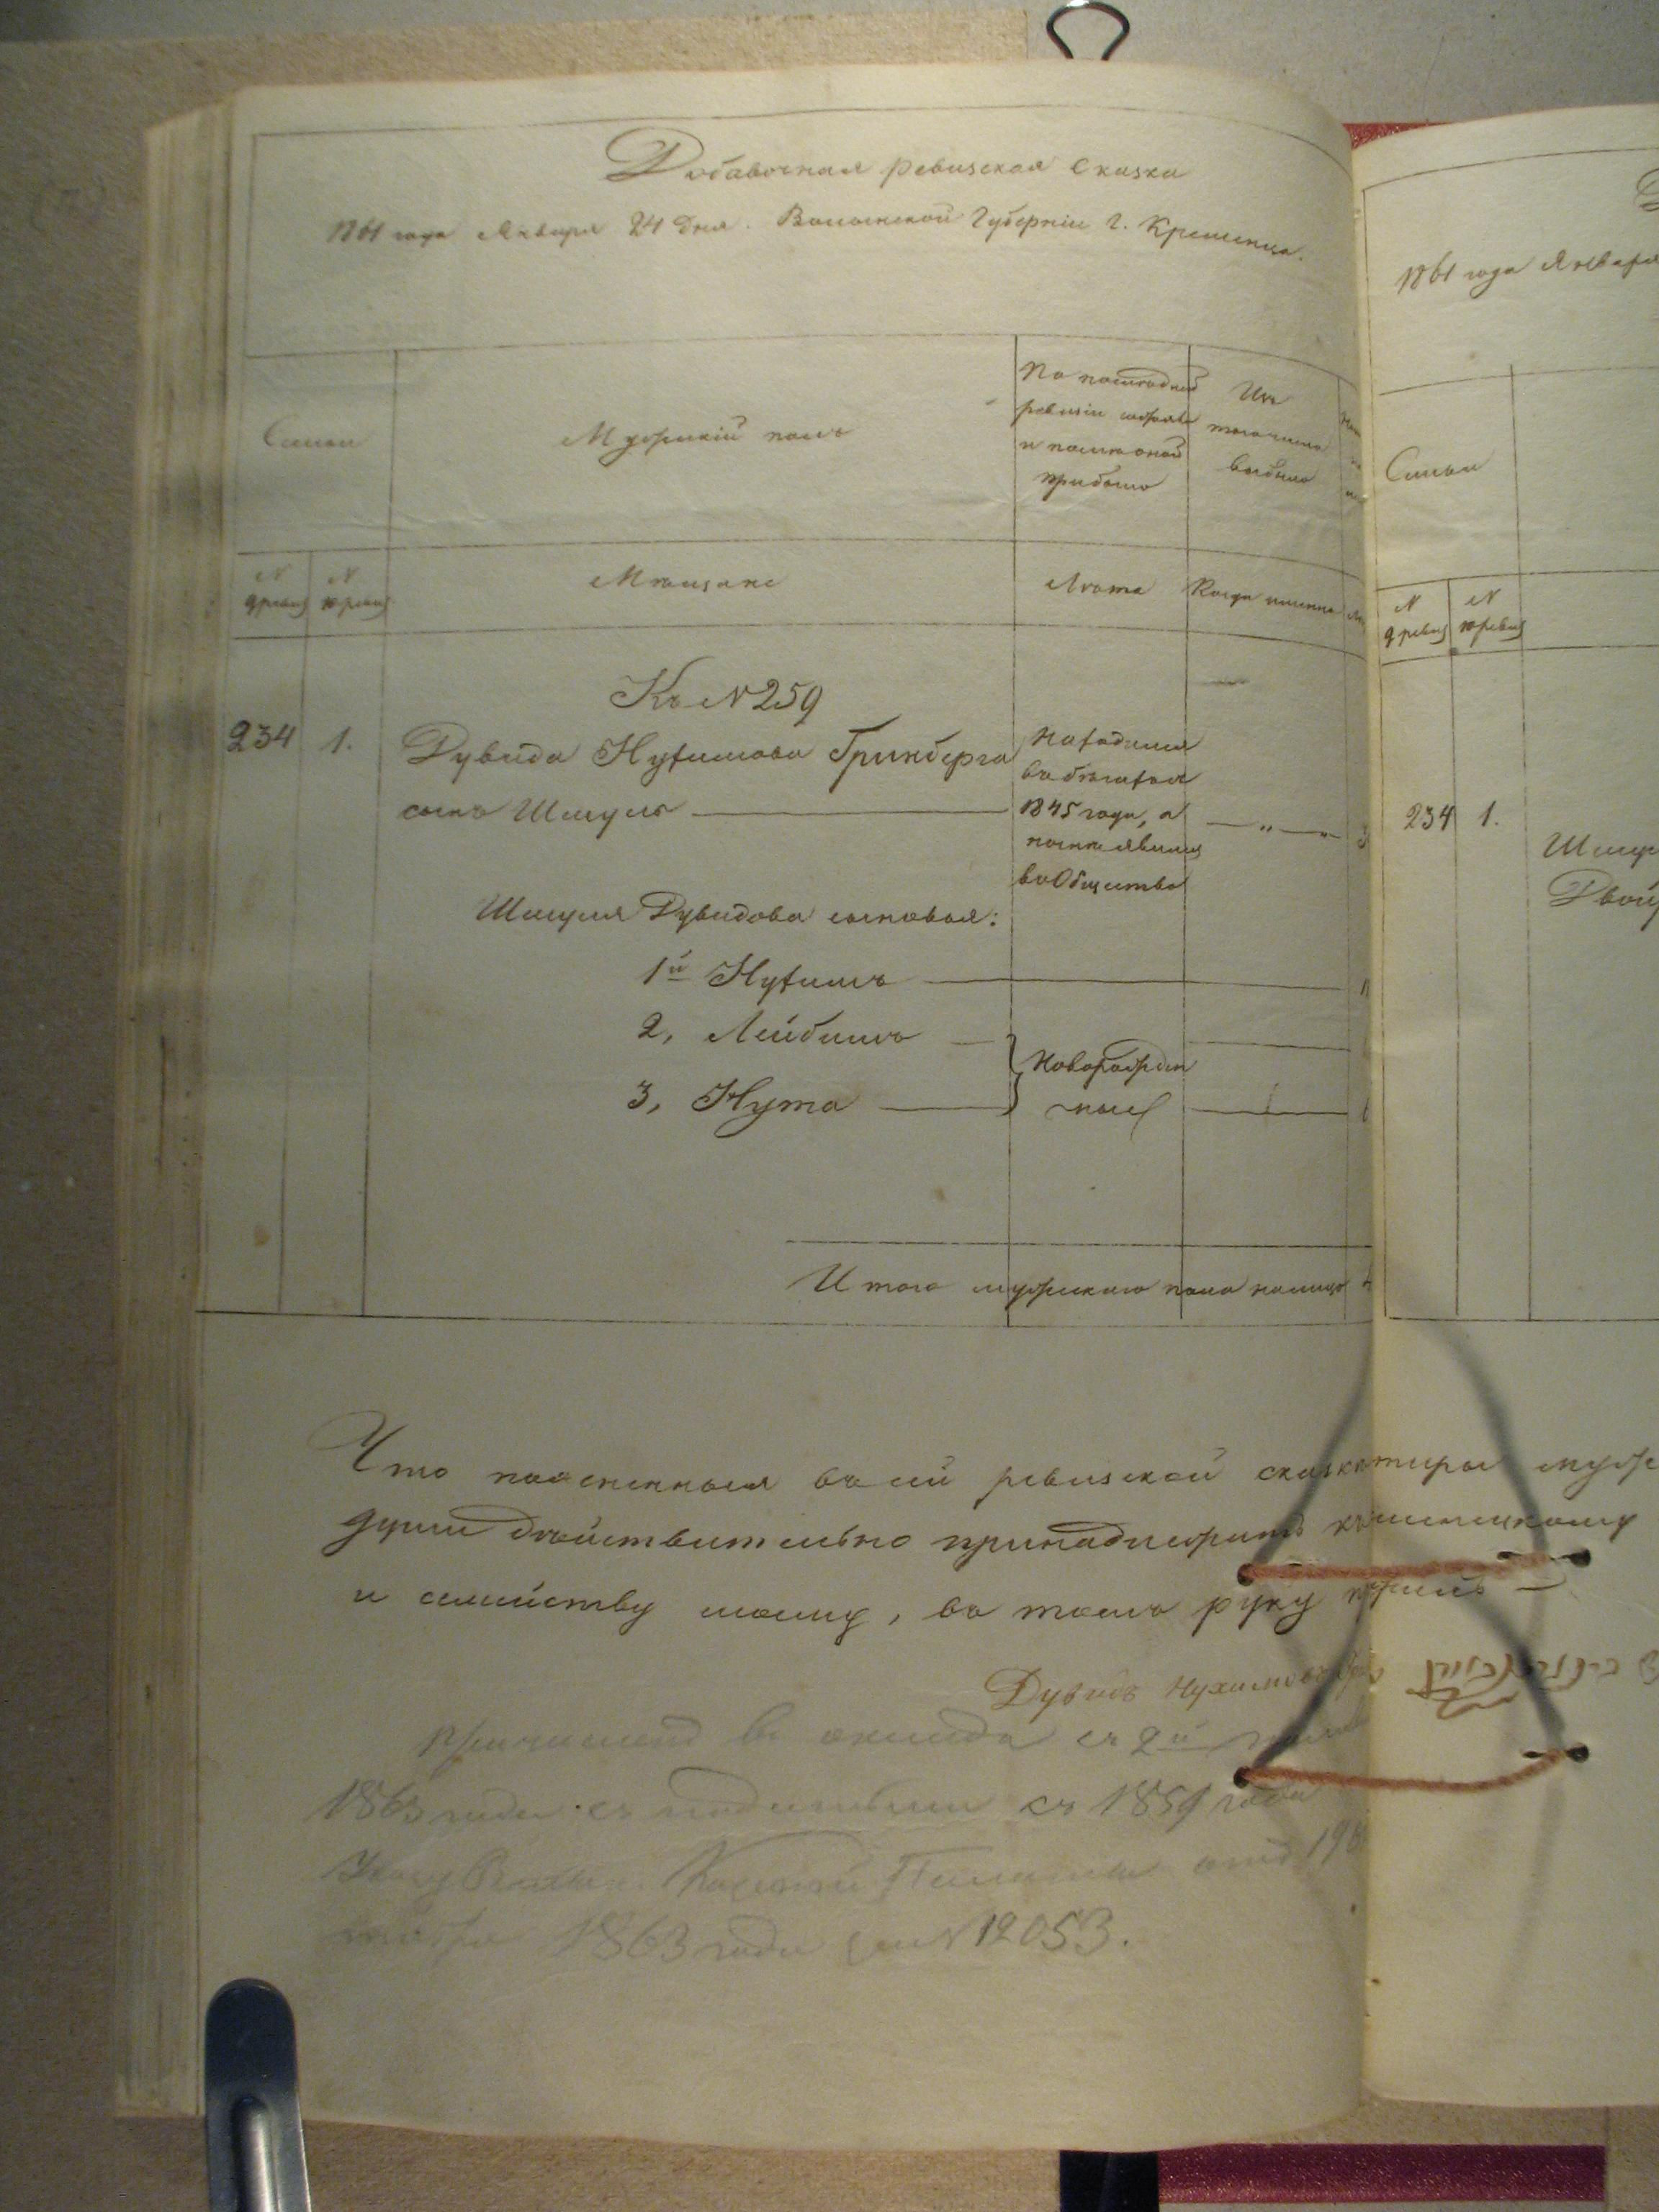 Добавочная ревизская сказка
1861 года Января 24 дня. Волынской Губернiи г. Кременца.
Семьи
Мужескiй полъ
По последней
ревизiи состояло
и после оной
прибыло
Изъ
того числа
выбыло
N
9 ревиз
N
10 ревиз
Мещане
Лета
Когда именно
Къ N 259
234 1. Дувида Нухимова Гринберга
сынъ Шмуль
находился
въ бегахъ съ
1845 года, а
ныне явился
въ Общество
Шмуля Дувидова сыновья:
1й Нухимъ
2, Лейбишъ
3, Нута
Новорожден
ные
Итого мужескаго пола налицо
Что показанныя въ сей ревизской сказке четыре муж
души действительно принадлежатъ къ мещанскому
и семейству моему, въ томъ руку прилож
Дувидъ Нухимовъ
въ окладъ съ 2й
1863 года съ съ 1859 года
Казенной Палаты отъ 19
1863 года за N 12053.
1861 года Января
Семьи
N
9 ревиз
N
10 ревиз
234 1.
Шмул
Двой